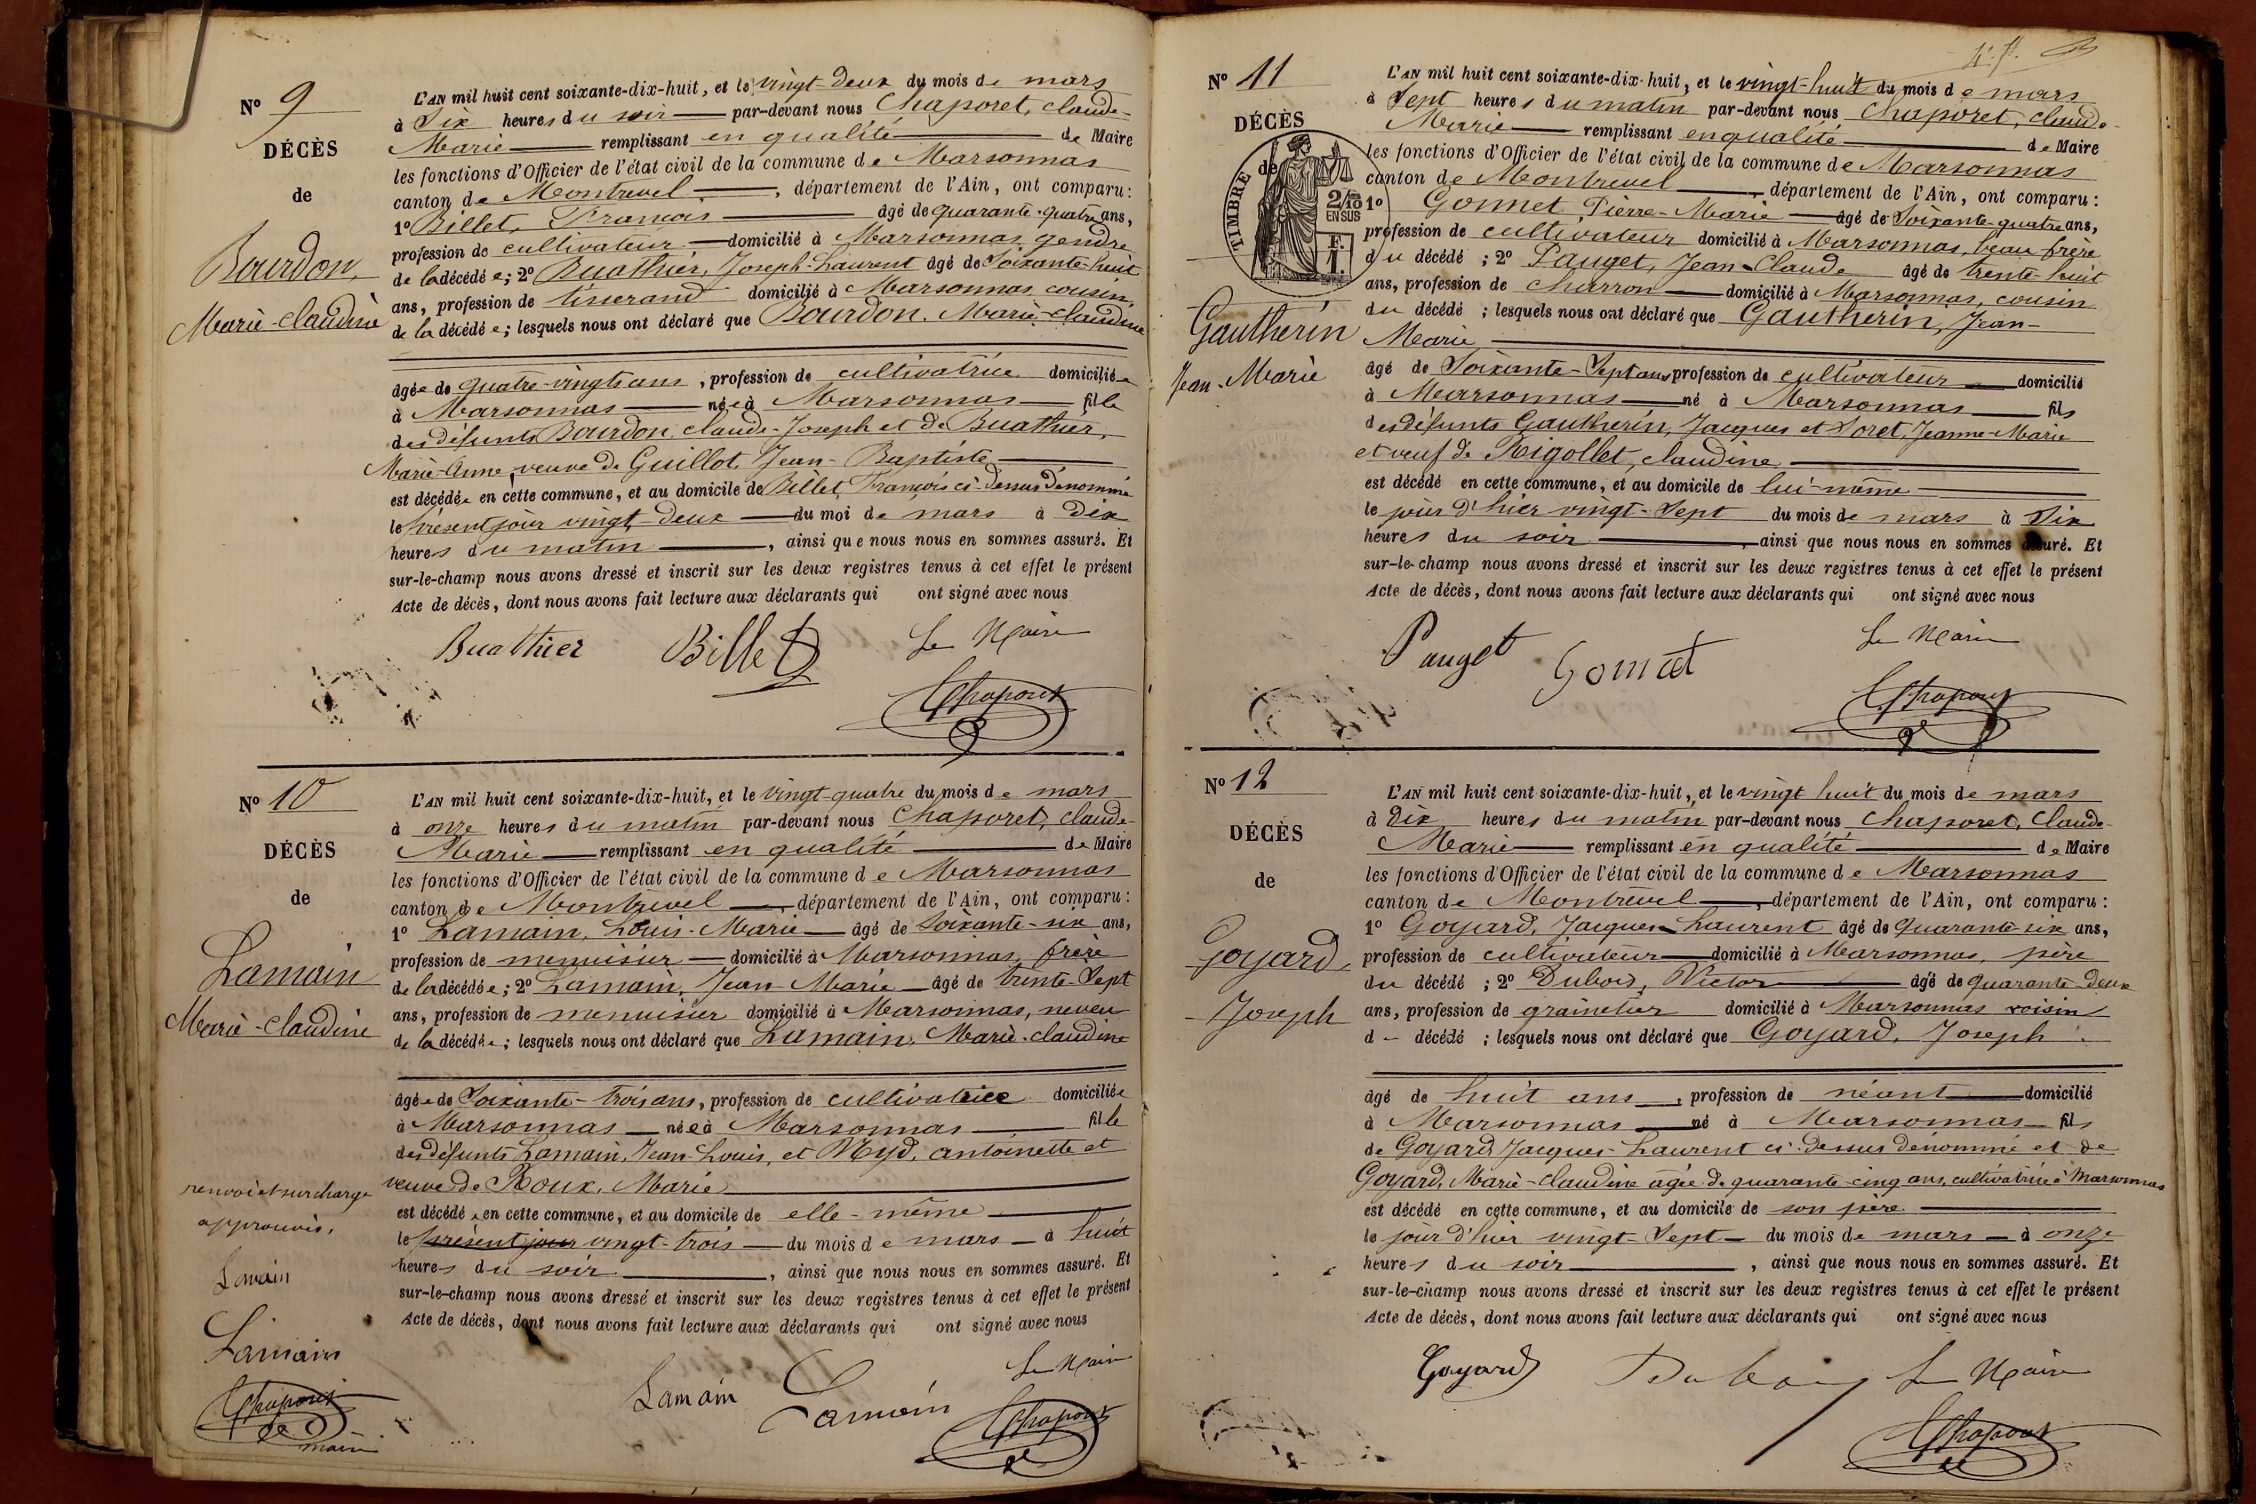 Nº 9
DÉCÈS
de
Bourdon,
Marie-Claudine
L'AN mil huit cent soixante-dix-huit, et le vingt-deux du mois de mars
à Six heures du soir par-devant nous Chaporet, Claude-
Marie remplissant en qualité de Maire
les fonctions d'Officier de l'état civil de la commune de Marsonnas
canton de Montrevel, département de l'Ain, ont comparu:
1º Billet, François âgé de quarante-quatre ans,
profession de cultivateur domicilié à Marsonnas, gendre
de la décédée; 2º Buathier, Joseph-Laurent âgé de Soixante-huit
ans, profession de tisserand domicilié à Marsonnas, cousin
de la décédée; lesquels nous ont déclaré que Bourdon, Marie-Claudine
âgée de quatre-vingts ans, profession de cultivatrice domiciliée
à Marsonnas née à Marsonnas fille
des défunts Bourdon, Claude-Joseph et de Buathier,
Marie-Anne, veuve de Guillot, Jean-Baptiste
est décédée en cette commune, et au domicile de Billet, François ci-dessus dénommé
le présent jour vingt-deux du moi de mars à dix
heures du matin, ainsi que nous nous en sommes assuré. Et
sur-le-champ nous avons dressé et inscrit sur les deux registres tenus à cet effet le présent
Acte de décès, dont nous avons fait lecture aux déclarants qui ont signé avec nous
Buathier Billet Le Maire
CChaporet
Nº 10
DÉCÈS
de
Lamain
Marie-Claudine
L'AN mil huit cent soixante-dix-huit, et le vingt-quatre du mois de mars
à onze heures du matin par-devant nous Chaporet, Claude-
Marie remplissant en qualité de Maire
les fonctions d'Officier de l'état civil de la commune de Marsonnas
canton de Montrevel, département de l'Ain, ont comparu:
1º Lamain, Louis-Marie âgé de Soixante-six ans,
profession de menuisier domicilié à Marsonnas, frère
de la décédée; 2º Lamain, Jean-Marie âgé de trente-sept
ans, profession de menuisier domicilié à Marsonnas, neveu
de la décédée; lesquels nous ont déclaré que Lamain, Marie-Claudine
âgée de Soixante-trois ans, profession de cultivatrice domiciliée
à Marsonnas née à Marsonnas fille
des défunts Lamain, Jean-Louis, et Myd, Antoinette et
veuve de Roux, Marie
est décédée en cette commune, et au domicile de elle-même
le présent jour vingt-trois du mois de mars à huit
heures du soir, ainsi que nous nous en sommes assuré. Et
sur-le-champ nous avons dressé et inscrit sur les deux registres tenus à cet effet le présent
Acte de décès, dont nous avons fait lecture aux déclarants qui ont signé avec nous
renvoi et surcharge
approuvés.
Lamain
Lamain
CChaporet
maire
Lamain Lamain Le Maire
CChaporet
Nº 11
DÉCÈS
de
TIMBRE
2/10
EN SUS
F.
1.
Gautherin
Jean-Marie
L'AN mil huit cent soixante-dix-huit, et le vingt-huit du mois de mars
à Sept heures du matin par-devant nous Chaporet, Claude-
Marie remplissant en qualité de Maire
les fonctions d'Officier de l'état civil de la commune de Marsonnas
canton de Montrevel, département de l'Ain, ont comparu:
1º Gonnet, Pierre-Marie âgé de Soixante-quatre ans,
profession de cultivateur domicilié à Marsonnas, beau-frère
du décédé; 2º Pauget, Jean-Claude âgé de trente-huit
ans, profession de charron domicilié à Marsonnas, cousin
du décédé; lesquels nous ont déclaré que Gautherin, Jean-
Marie
âgé de Soixante-Sept ans profession de cultivateur domicilié
à Marsonnas né à Marsonnas fils
des défunts Gautherin, Jacques et Soret, Jeanne-Marie
et veuf de Rigollet, Claudine
est décédé en cette commune, et au domicile de lui-même
le jour d'hier vingt-Sept du mois de mars à Six
heures du soir, ainsi que nous nous en sommes assuré. Et
sur-le-champ nous avons dressé et inscrit sur les deux registres tenus à cet effet le présent
Acte de décès, dont nous avons fait lecture aux déclarants qui ont signé avec nous
Pauget Gonnet Le Maire
CChaporet
Nº 12
DÉCÈS
de
Goyard,
Joseph
L'AN mil huit cent soixante-dix-huit, et le vingt huit du mois de mars
à Dix heures du matin par-devant nous Chaporet, Claude-
Marie remplissant en qualité de Maire
les fonctions d'Officier de l'état civil de la commune de Marsonnas
canton de Montrevel, département de l'Ain, ont comparu:
1º Goyard, Jacques-Laurent âgé de quarante-six ans,
profession de cultivateur domicilié à Marsonnas, père
du décédé; 2º Dubois, Victor âgé de quarante-deux
ans, profession de grainetier domicilié à Marsonnas voisin
d décédé; lesquels nous ont déclaré que Goyard, Joseph
âgé de huit ans, profession de néant domicilié
à Marsonnas né à Marsonnas fils
de Goyard Jacques-Laurent ci-dessus dénommé et de
Goyard, Marie-Claudine âgée de quarante-cinq ans, cultivatrice à Marsonnas
est décédé en cette commune, et au domicile de son père
le jour d'hier vingt-Sept du mois de mars à onze
heures du soir, ainsi que nous nous en sommes assuré. Et
sur-le-champ nous avons dressé et inscrit sur les deux registres tenus à cet effet le présent
Acte de décès, dont nous avons fait lecture aux déclarants qui ont signé avec nous
Goyard Dubois Le Maire
CChaporet